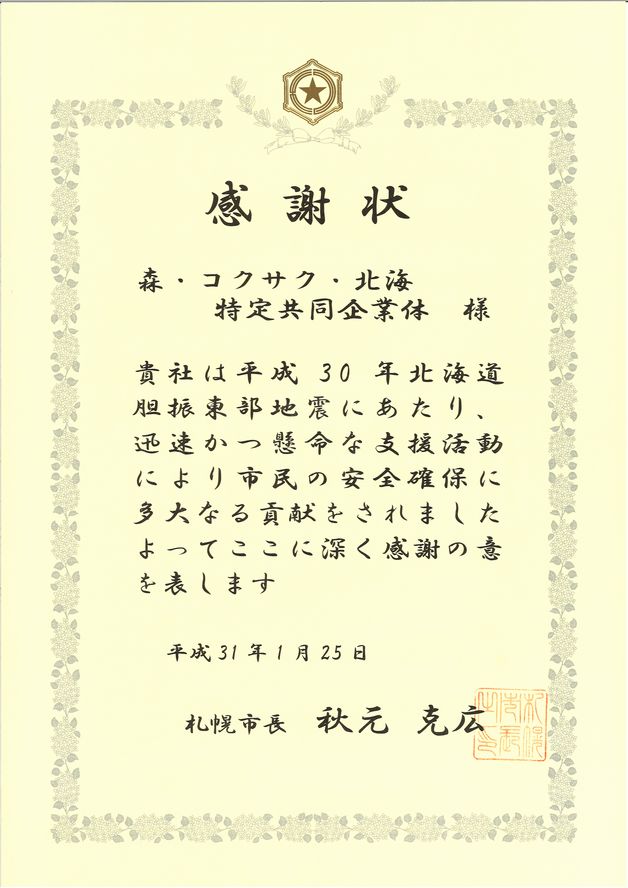 感謝状
森・コクサク・北海
特定共同企業体 様
貴社は平成30年北海道
胆振東部地震にあたり、
迅速かつ懸命な支援活動
により市民の安全確保に
多大なる貢献をされました
よってここに深く感謝の意
を表します
平成31年1月25日
札幌市長 秋元 克広
札幌市長之印